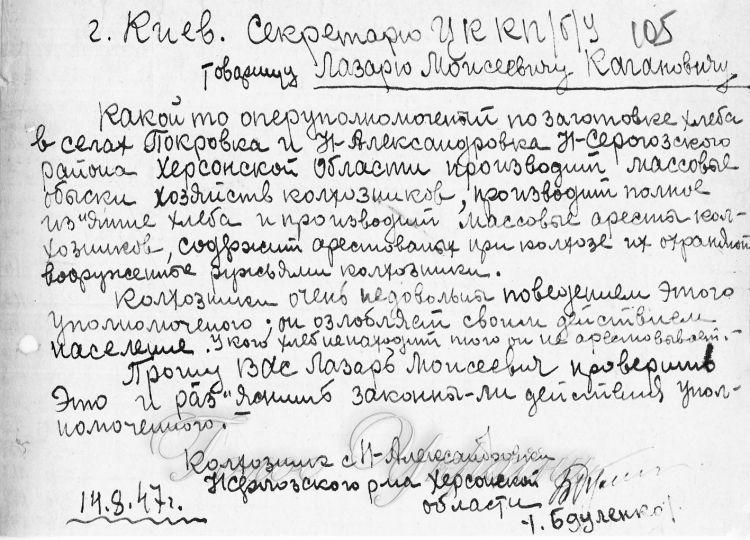 г. Киев. Секретарю ЦК КП/б/У 105
Товарищу Лазарю Моисеевичу Кагановичу
Какой то оперуполномоченый по заготовке хлеба
в селах Покровка и Н-Александровка Н-Серогозского
района Херсонской Области производит массовые
обыски хозяйств колхозников, производит полное
из"ятие хлеба и производит массовые аресты кол-
хозников, содржит арестованых при колхозе их охраняют
вооруженные ружьями колхозники.
Колхозники очень недовольны поведением этого
уполномоченого; он озлобляет своим действием
население. У кого хлеб ненаходит того он не арестовывает.-
Прошу ВАс Лазарь Моисеевич проверить
Это и раз"яснить законны-ли действия упол-
номоченного.-
Колхозник с Н-Александровки
Нсерогозского р-на Херсонской
области
14.8.47г.